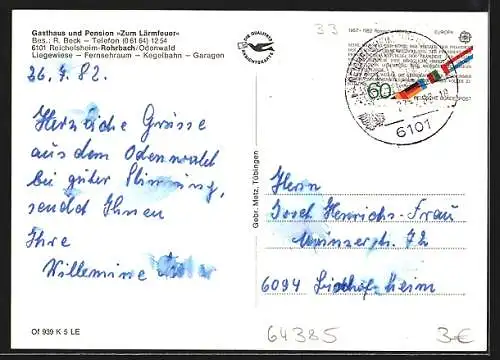 Gasthaus und Pension »Zum Lärmfeuer«
Bes.: R. Beck – Telefon (0 61 64) 12 54
6101 Reichelsheim-Rohrbach/Odenwald
Liegewiese – Fernsehraum – Kegelbahn – Garagen
26.7.82.
Herzliche Grüsse
aus dem Odenwald
bei guter Stimmung,
sendet Ihnen
Ihre
Willemine
Of 939 K 5 LE
Gebr. Metz, Tübingen
33
EUROPA
60
DEUTSCHE BUNDESPOST
6101
Herrn
Josef Henrichs-Frau
Mainzerstr. 72
6094 Bischofsheim
64385
3€